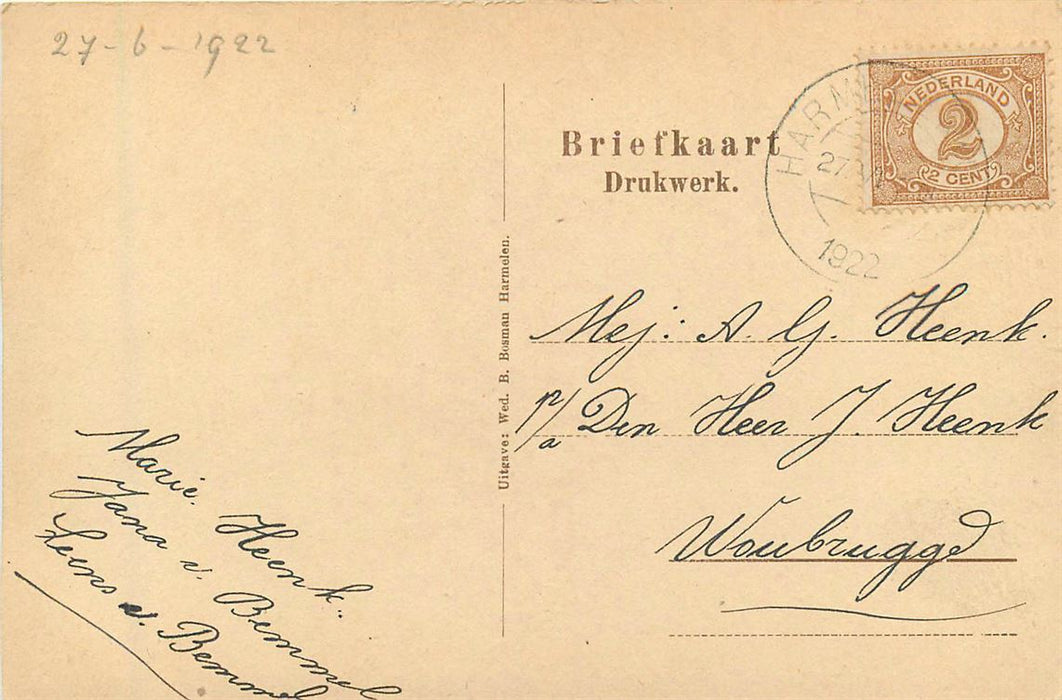 27-6-1922
Briefkaart
Drukwerk.
NEDERLAND
2
2 CENT
HARM
27
1922
Uitgave: Wed. B. Bosman Harmelen.
Mej: A. G. Heenk.
p/a Den Heer J. Heenk
Woubrugge
Marie Heenk.
Jana v. Bemmel
Leens v. Bemmel